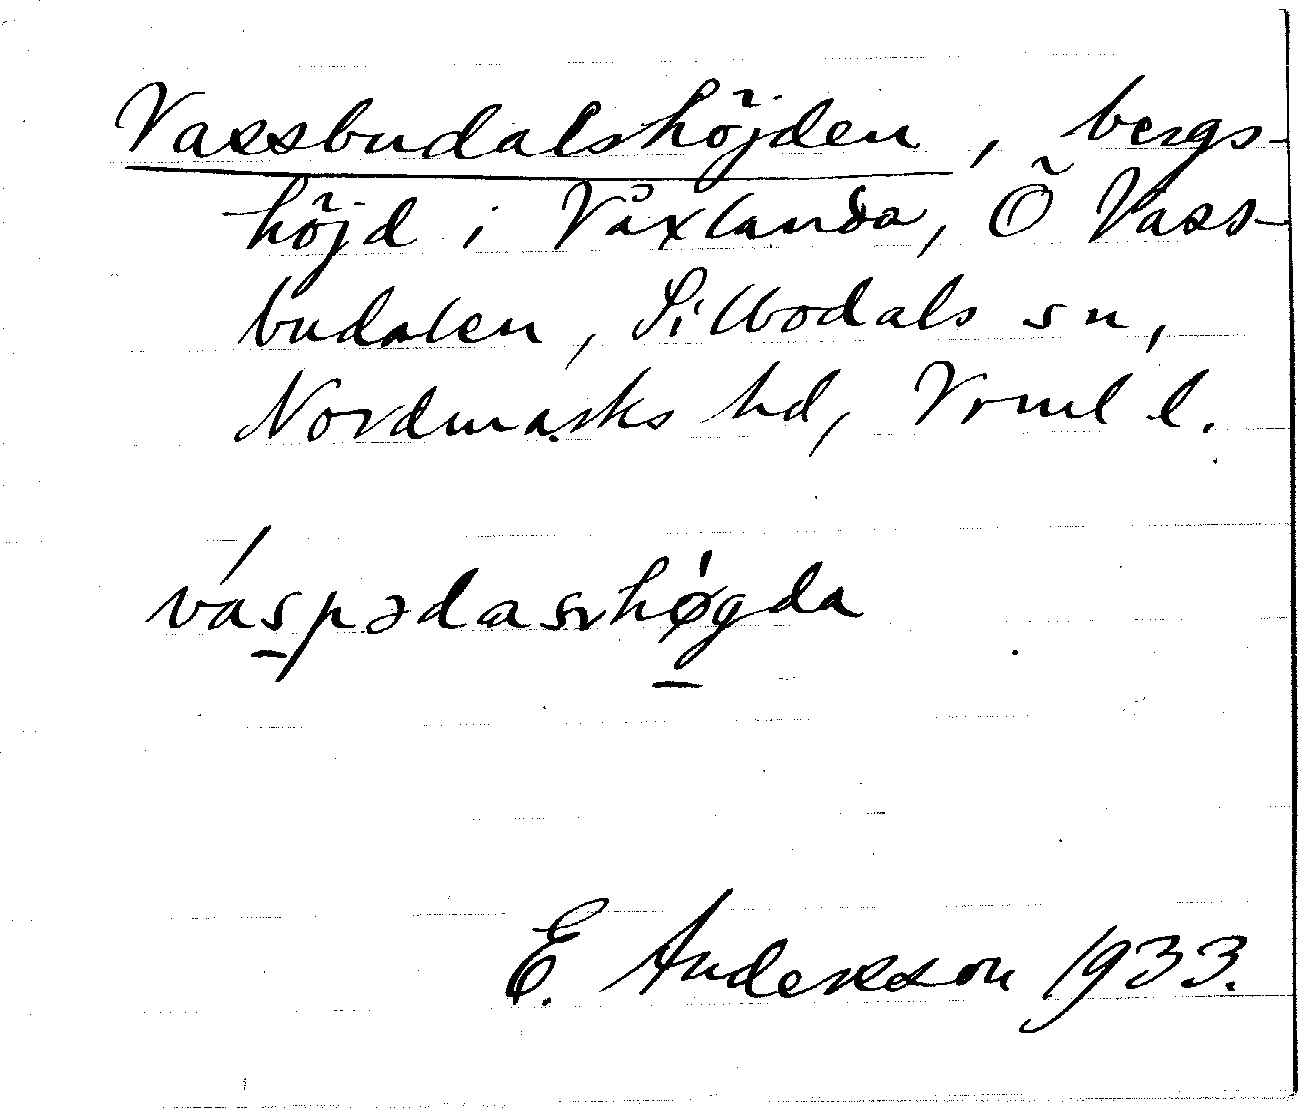 Vassbudalshöjden, bergs-
höjd i Våxlanda, Ö Vass-
budalen, Sillbodals sn,
Nordmarks hd, Vrml l.
váspədasrhøgda
E. Andersson 1933.